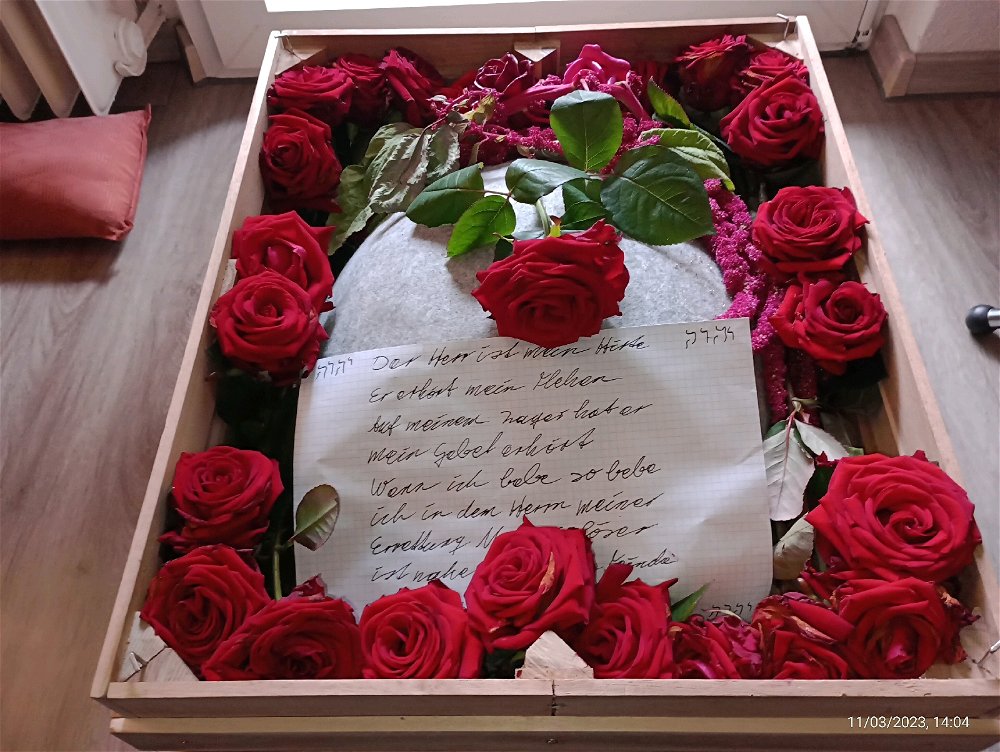 יהוה Der Herr ist mein Hirte יהוה
Er erhört mein Flehen
Auf meinem Lager hat er
mein Gebet erhört
Wenn ich bebe so bebe
ich in dem Herrn meiner
Errettung
ist nahe
יהוה
11/03/2023, 14:04